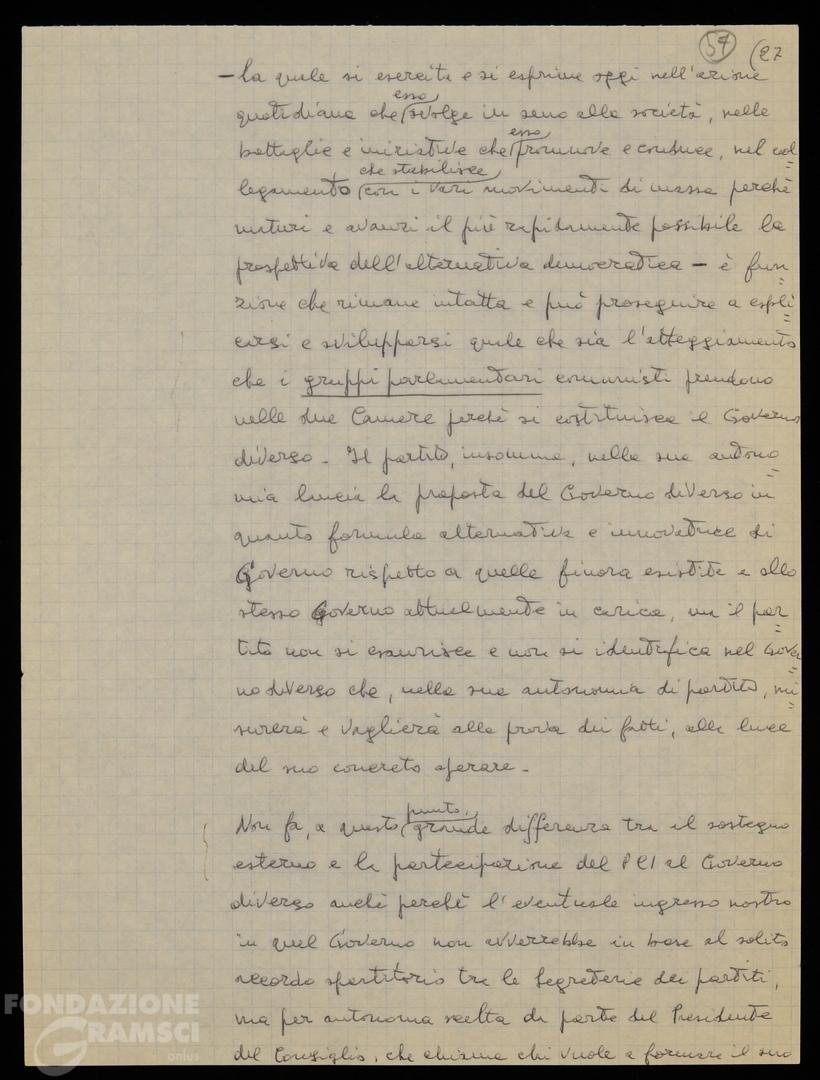 57 (27
– la quale si esercita e si esprime oggi nell'azione
esso
quotidiana che svolge in seno alla società, nelle
esso
battaglie e iniziative che promuove e conduce, nel col=
che stabilisce
legamento con i vari movimenti di massa perchè
maturi e avanzi il più rapidamente possibile la
prospettiva dell'alternativa democratica – è fun=
zione che rimane intatta e può proseguire a espli=
carsi e svilupparsi quale che sia l'atteggiamento
che i gruppi parlamentari comunisti prendono
nelle due Camere perchè si costituisca il Governo
diverso. Il partito, insomma, nella sua autono=
mia lancia la proposta del Governo diverso in
quanto formula alternativa e innovatrice di
Governo rispetto a quelle finora esistite e allo
stesso Governo attualmente in carica, ma il par=
tito non si esaurisce e non si identifica nel Gover=
no diverso che, nella sua autonomia di partito, mi=
surerà e vaglierà alla prova dei fatti, alla luce
del suo concreto operare.
punto,
Non fa, a questo grande differenza tra il sostegno
esterno e la partecipazione del PCI al Governo
diverso anche perchè l'eventuale ingresso nostro
in quel Governo non avverrebbe in base al solito
accordo spartitorio tra le Segreterie dei partiti,
ma per autonoma scelta da parte del Presidente
del Consiglio, che chiama chi vuole a formare il suo
FONDAZIONE
GRAMSCI
onlus